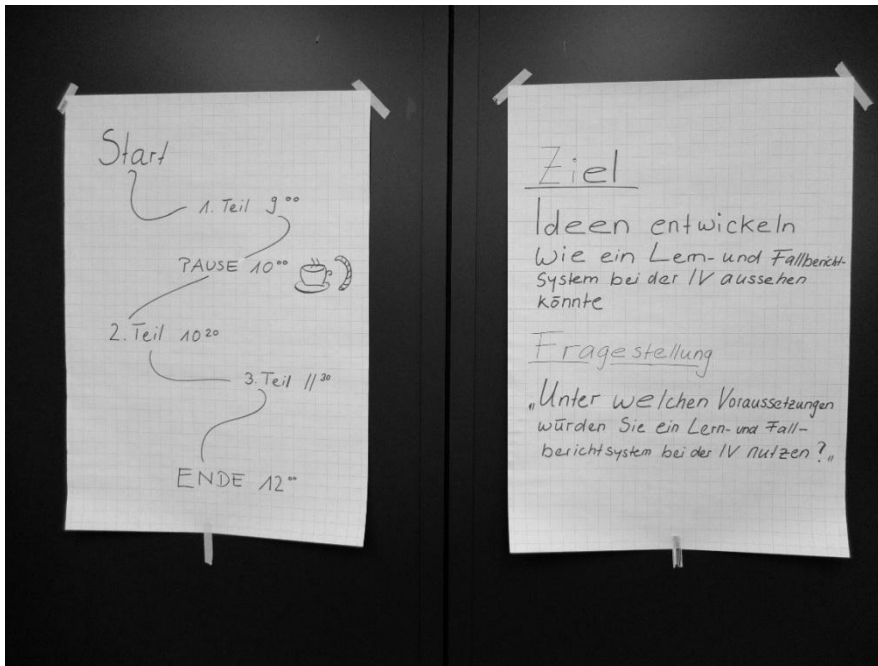 Start
1. Teil 9⁰⁰
PAUSE 10⁰⁰
2. Teil 10²⁰
3. Teil 11³⁰
ENDE 12⁰⁰
Ziel
Ideen entwickeln
Wie ein Lern- und Fallbericht-
System bei der IV aussehen
könnte
Fragestellung
„Unter welchen Voraussetzungen
würden Sie ein Lern- und Fall-
berichtsystem bei der IV nutzen?"